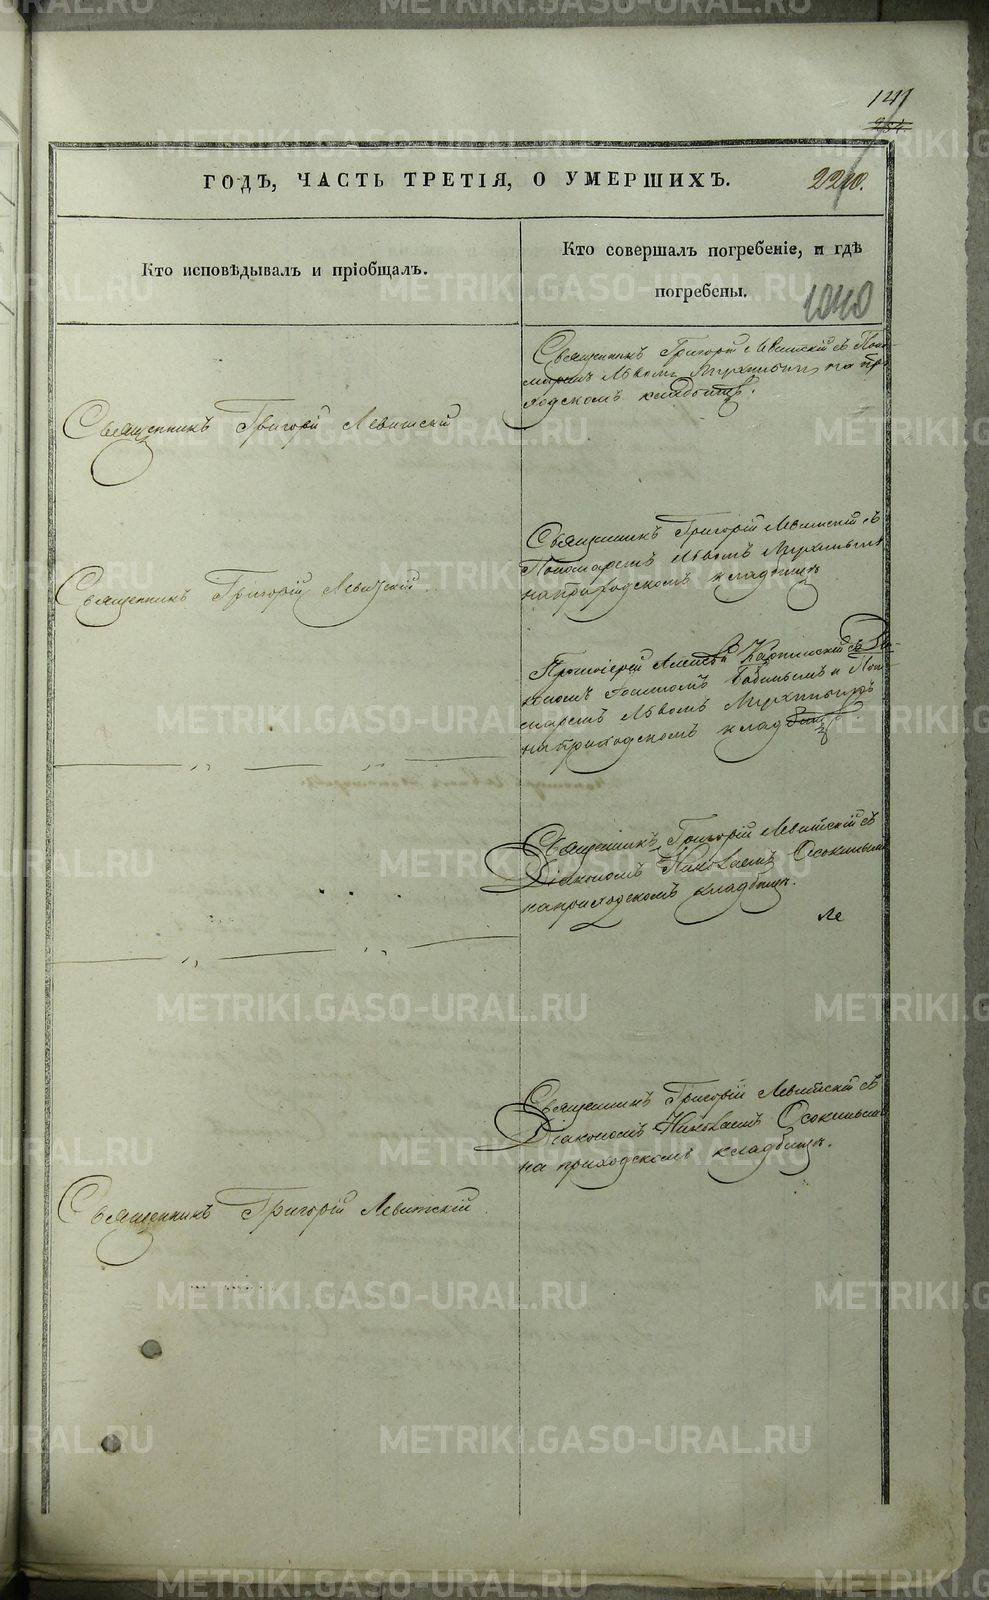 141
ГОДЪ, ЧАСТЬ ТРЕТІЯ, О УМЕРШИХЪ.
Кто исповѣдывалъ и пріобщалъ.
Кто совершалъ погребеніе, и гдѣ
погребены.
1040
Священникъ Григорій Левитскій съ Поно-
маремъ Львомъ на при-
ходскомъ кладбищѣ.
Священникъ Григорій Левитскій
Священникъ Григорій Левитскій съ
Пономаремъ Львомъ
на приходскомъ кладбищѣ
Священникъ Григорій Левитскій.
Протоіерей Карпинскій съ Діа-
кономъ и Поно-
маремъ Львомъ
на приходскомъ кладбищѣ
Священникъ Григорій Левитскій съ
Діакономъ Николаемъ Осокинымъ
на приходскомъ кладбищѣ.
Ле
Священникъ Григорій Левитскій съ
Діакономъ Николаемъ Осокинымъ
на приходскомъ кладбищѣ.
Священникъ Григорій Левитскій.
METRIKI.GASO-URAL.RU